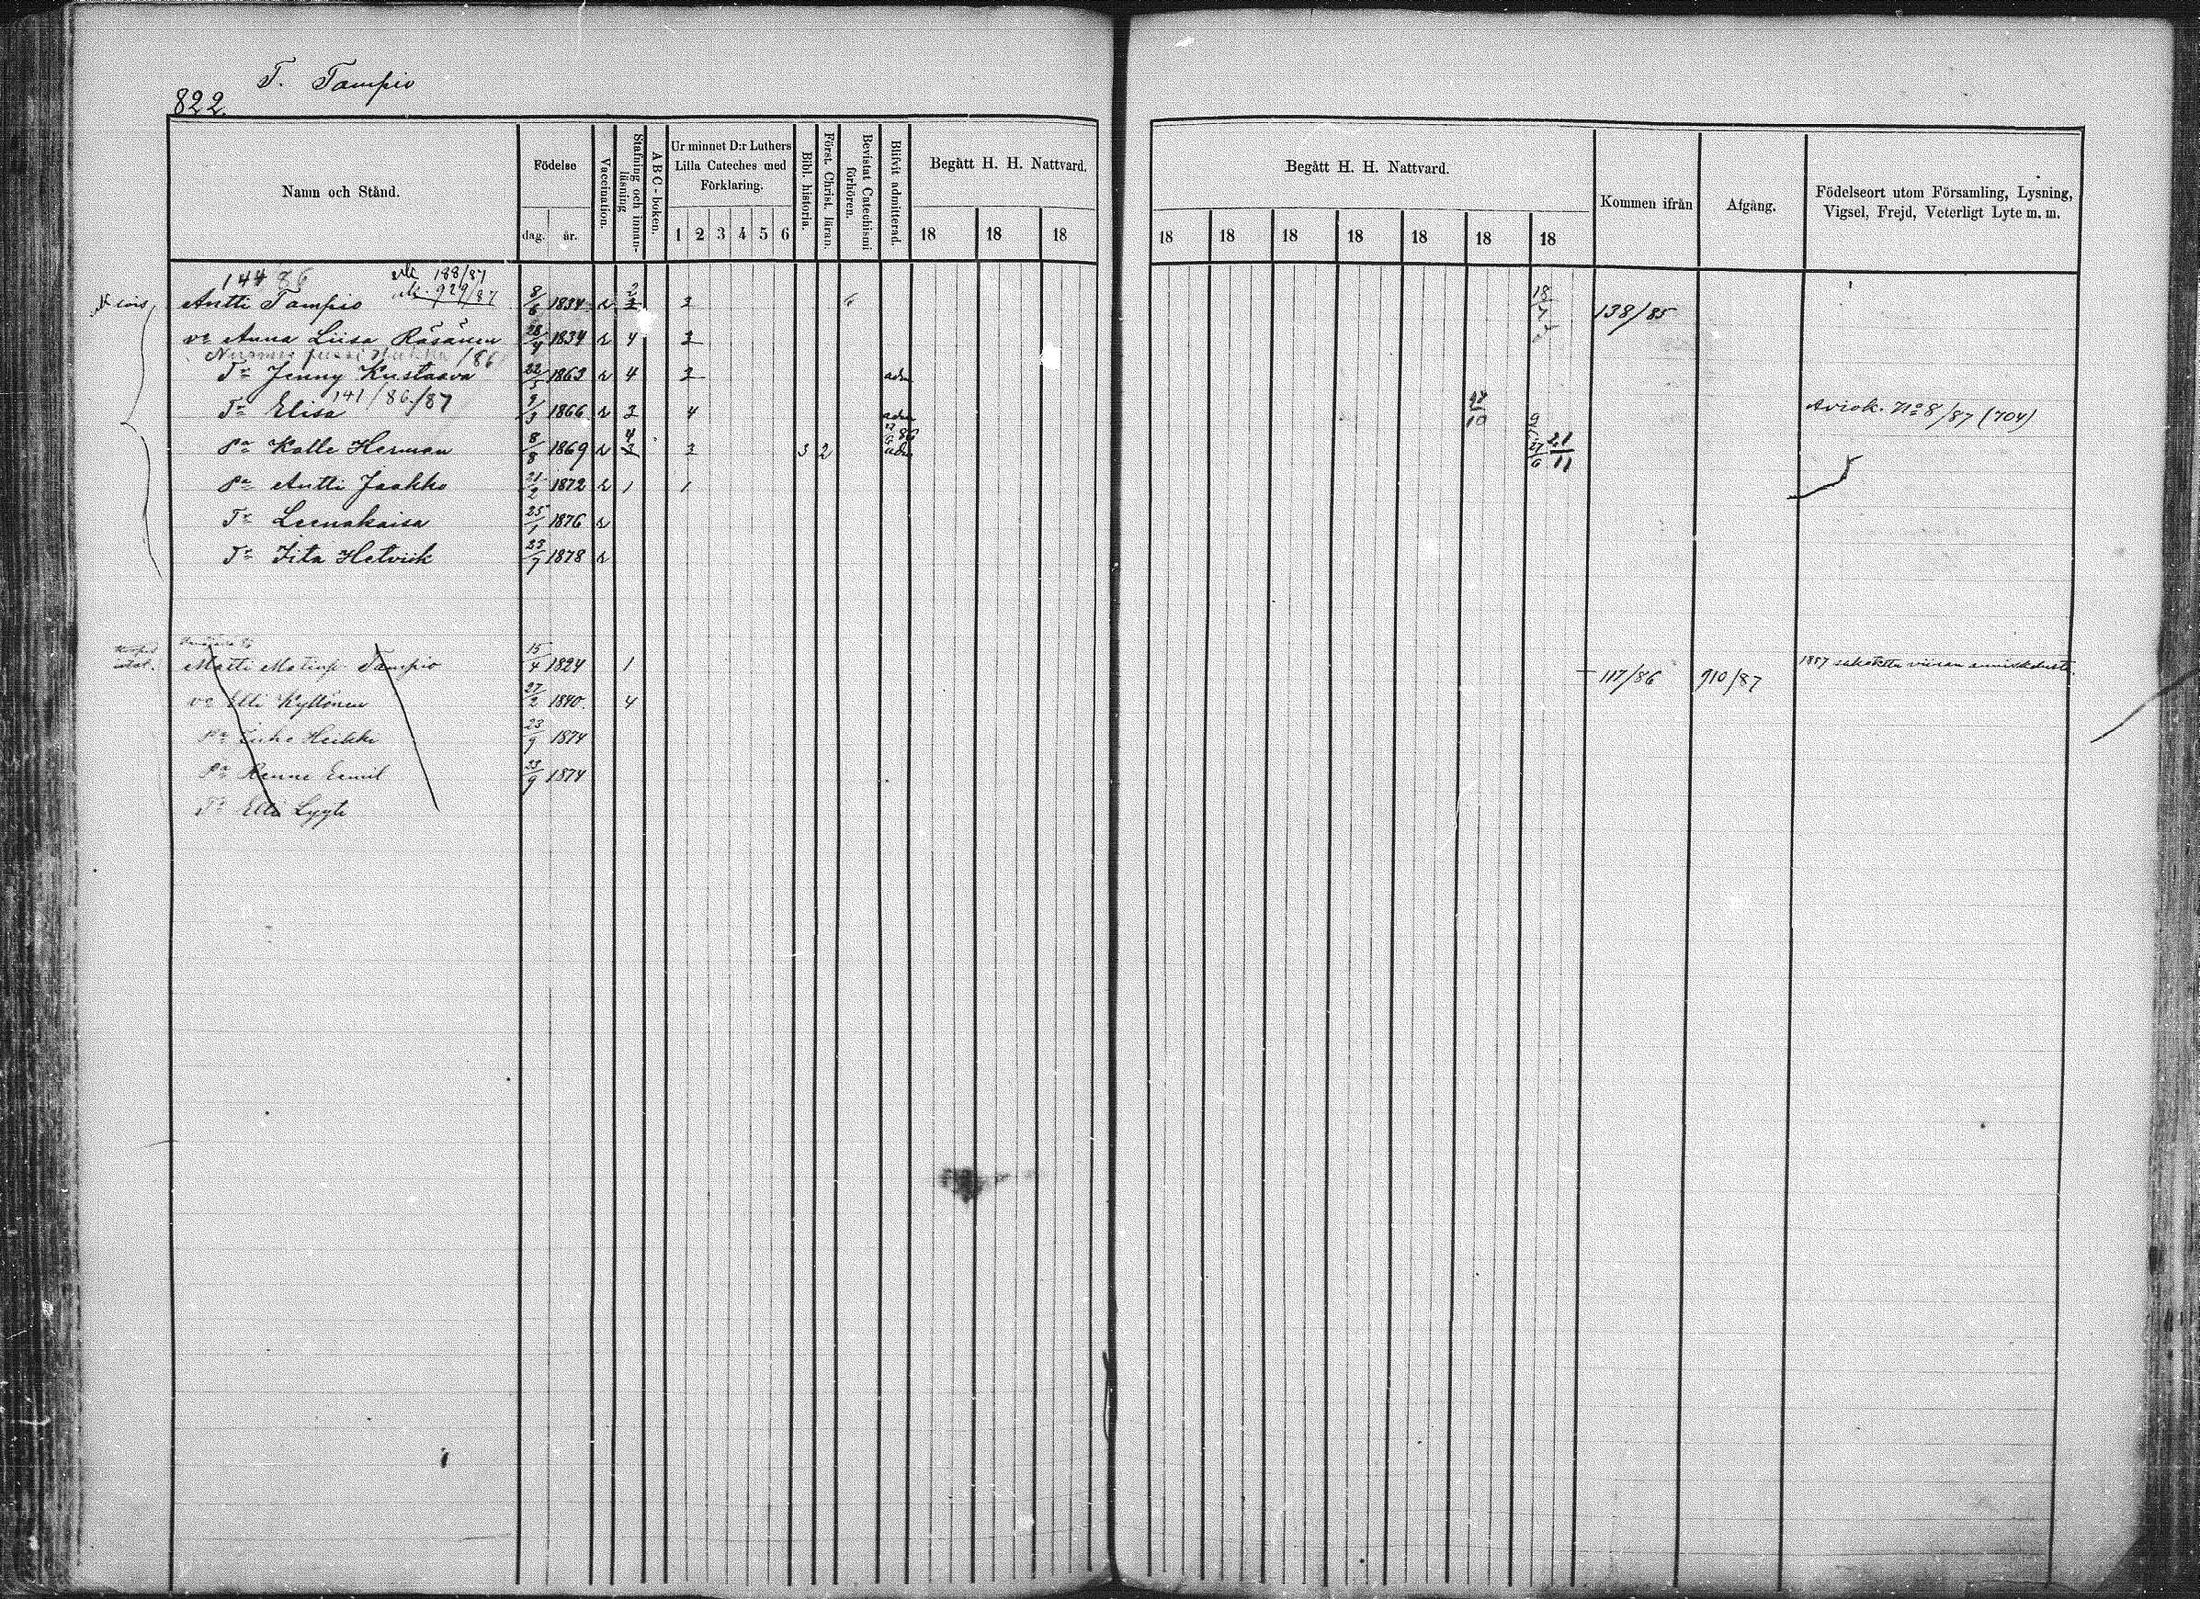 822.
T. Tampio
Namn och Stånd.
Födelse
dag.
år.
Vaccination.
Stafning och innan-läsning
ABC-boken.
Ur minnet D:r Luthers Lilla Cateches med Förklaring.
1 2 3 4 5 6
Bibl. historia.
Först. Christ. läran.
Bevistat Catechismi förhören.
Blifvit admitterad.
Begått H. H. Nattvard.
18 18 18
Begått H. H. Nattvard.
18 18 18 18 18 18 18
Kommen ifrån
Afgång.
Födelseort utom Församling, Lysning, Vigsel, Frejd, Veterligt Lyte m. m.
188/87
929/87
Antti Tampio 8/6 1834 2 3 3 18 138/85
vo Anna Liisa Räsänen 28/4 1834 4 3
/86
Tr Jenny Kustaava 22/5 1863 4 3 adm
141/86/87
Tr Elisa 9/3 1866 3 4 adm 10 Aviok. No 8/87 (704)
Pa Kalle Herman 8/8 1869 4 3 3 3 2 86 adm 27/6 21/11
Pa Antti Jaakko 21/2 1872 1 1
Tr Leenakaisa 25/1 1876
Tr Iita Hetvik 23/9 1878
Matti Matinp. Tampio 15/4 1824 1 117/86 910/87 1857
vo Elli Kyllönen 27/2 1840. 4
Pa Heikki 23/9 1874
Pa Eemil 23/9 1874
Tr Elli Lyyti